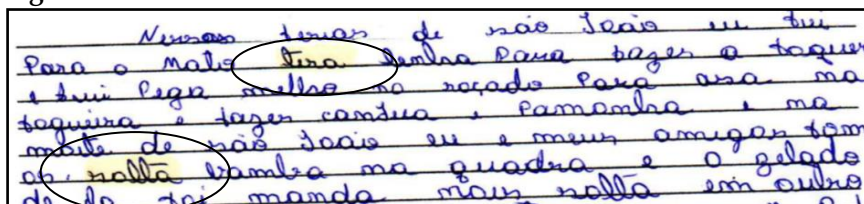 Nessas ferias de são João eu fui
Para o Mato tira lenha Para fazer a foguer
e fui Pega melho no roçado Para asa na
fogueira e fazer canjica e Pamonha e na
noite de são João eu e meus amigos fom
os soltã bamba na quadra e o zelado
de la foi manda nois soltã em outro